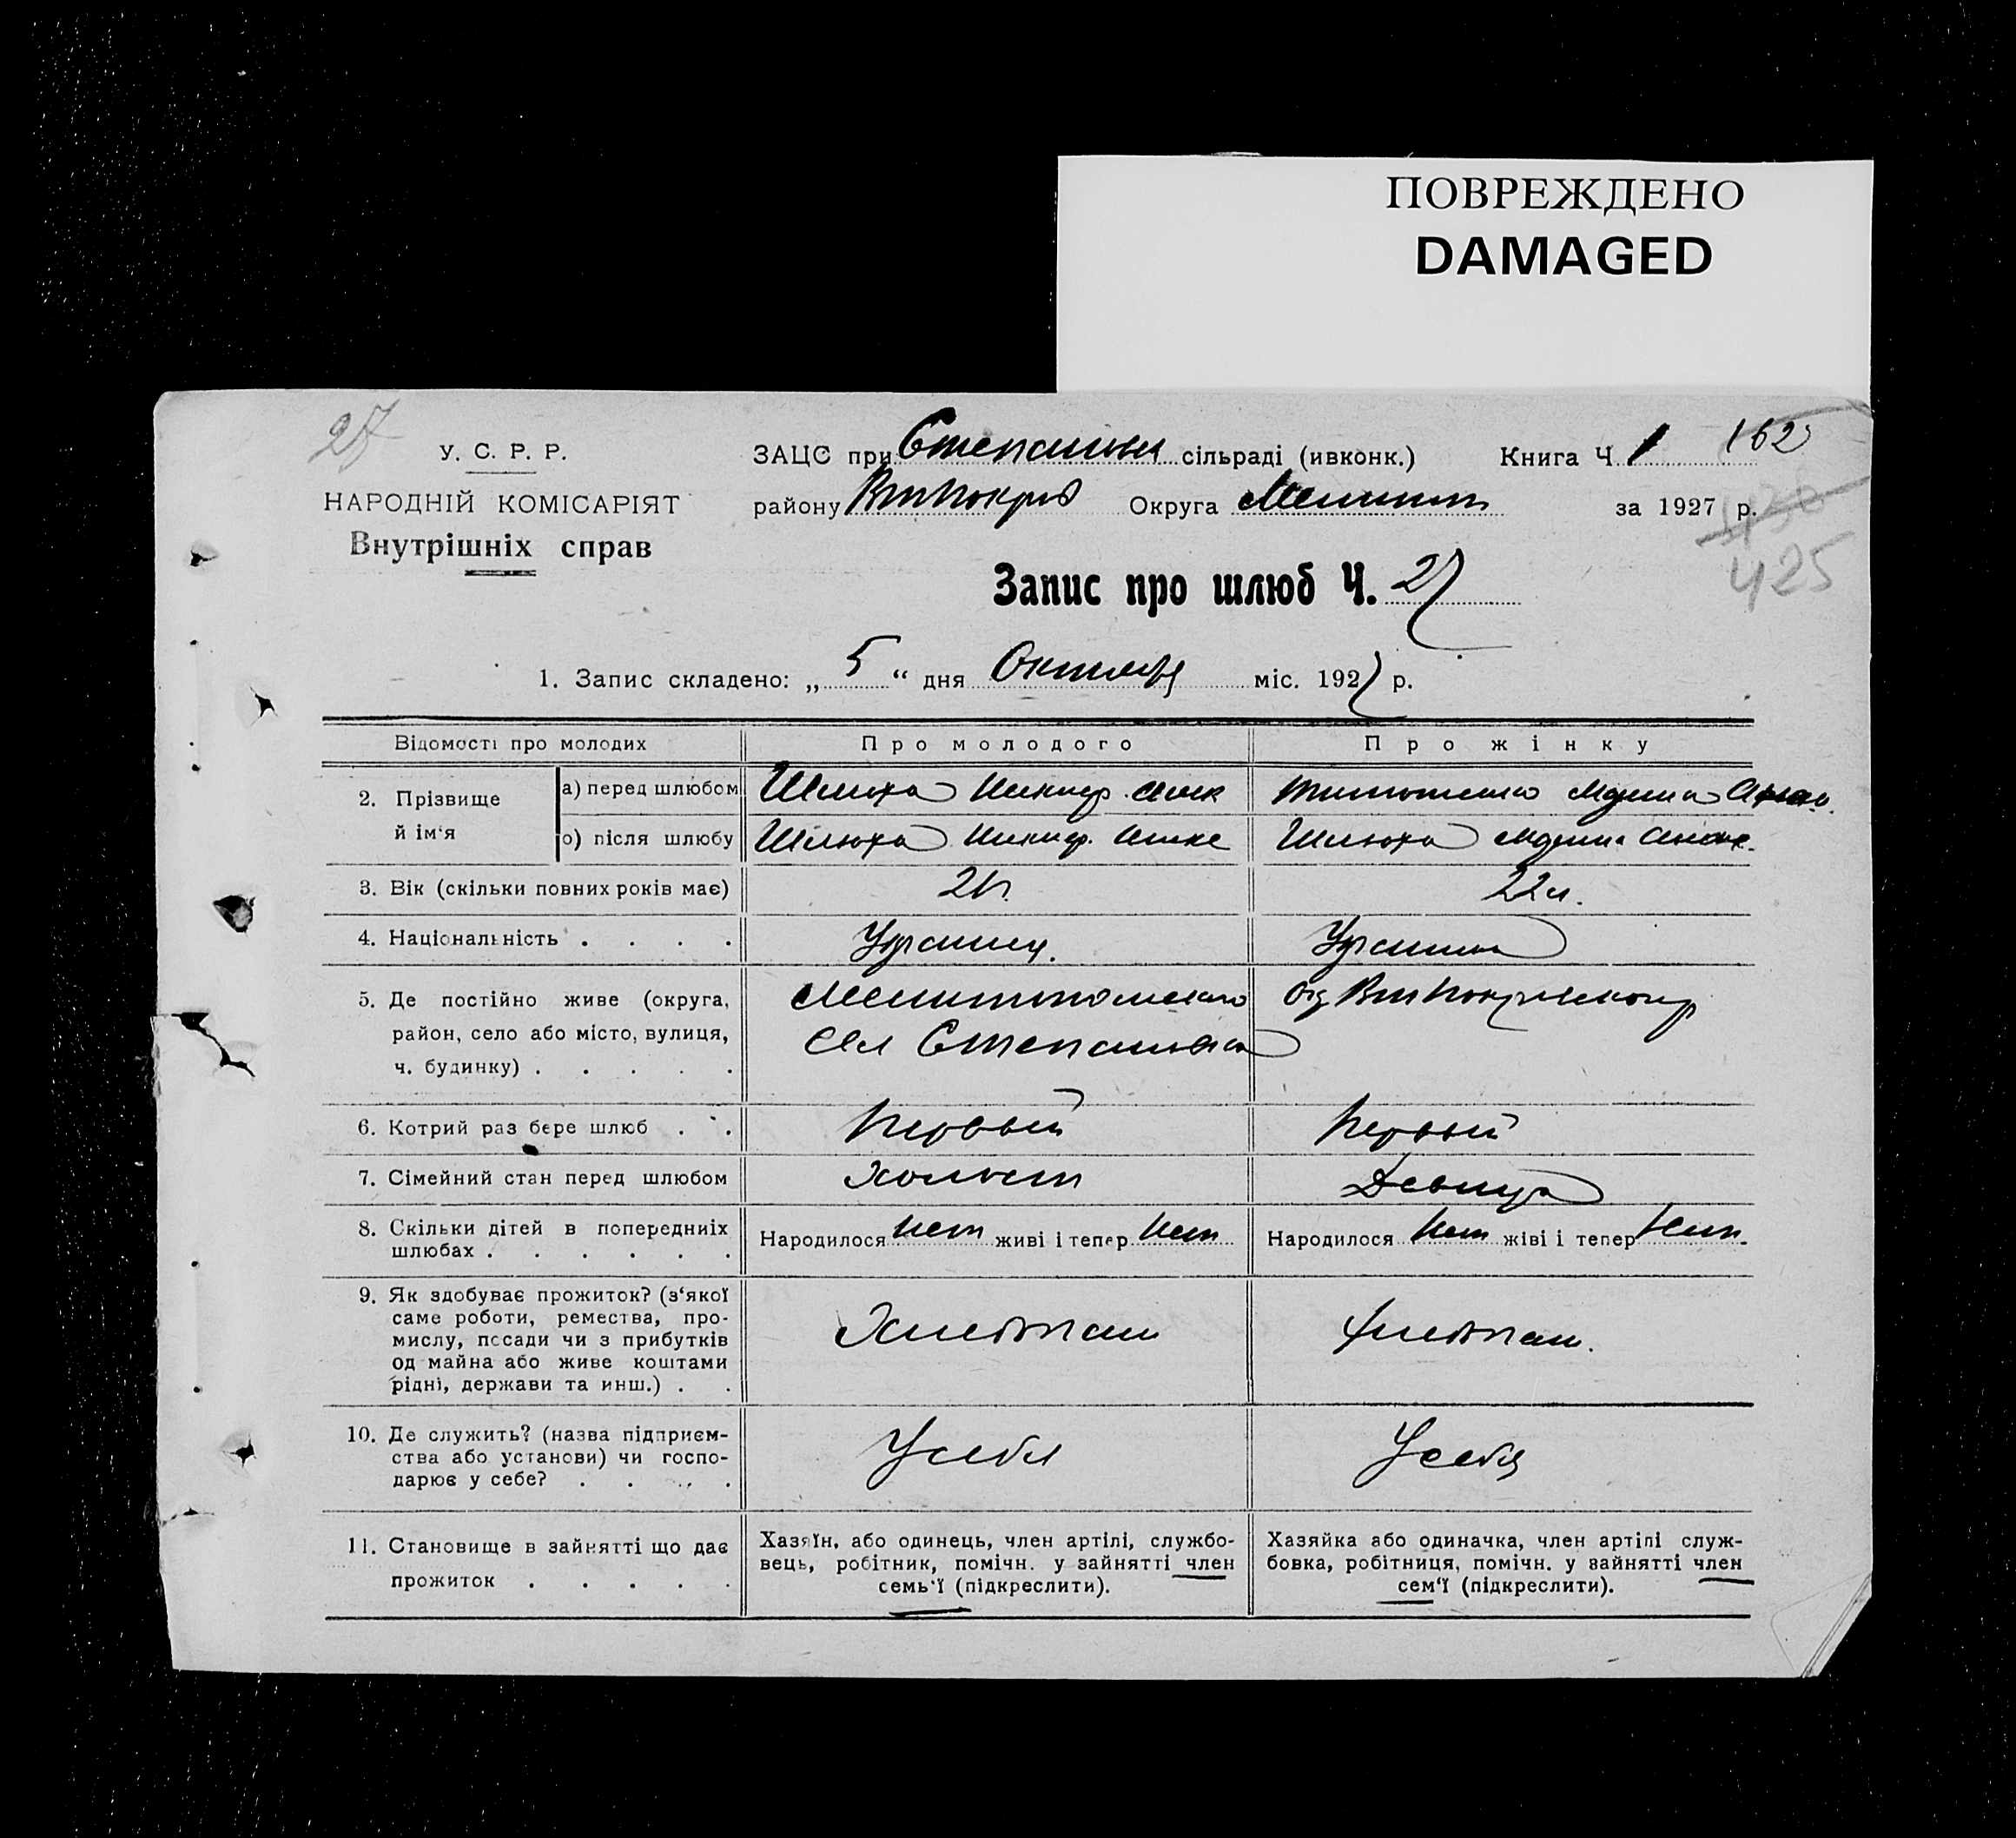 ПОВРЕЖДЕНО
DAMAGED
27
У. С. Р. Р.
НАРОДНІЙ КОМІСАРІЯТ
Внутрішніх справ
ЗАЦС при сільраді (ивконк.) Книга Ч. 1 162
району Округа за 1927 р.
425
Запис про шлюб Ч. 27
1. Запис складено: „ 5 “ дня Октября міс. 1927 р.
Відомості про молодих Про молодого Про жінку
2. Прізвище й ім'я
а) перед шлюбом
о) після шлюбу Шлюха Шлюха
3. Вік (скільки повних років має) 22 л.
4. Національність . . . . Украинец. Украинка
5. Де постійно живе (округа,
район, село або місто, вулиця,
ч. будинку) . . . . .
6. Котрий раз бере шлюб . . Первый Первый
7. Сімейний стан перед шлюбом Холост Девица
8. Скільки дітей в попередниіх
шлюбах . . . . . .
Народилося нет живі і тепер нет Народилося нет жіві і тепер нет.
9. Як здобуває прожиток? (з'якої
саме роботи, ремества, про-
мислу, посади чи з прибутків
од майна або живе коштами
рідні, держави та инш.) . .
Хлебопаш Хлебопаш.
10. Де служить? (назва підприєм-
ства або установи) чи госпо-
дарює у себе? . . . .
У себя У себя
11. Становище в зайнятті що дає
прожиток . . . . .
Хазяїн, або одинець, член артілі, службо-
вець, робітник, помічн. у зайнятті член
семь'ї (підкреслити).
Хазяйка або одиначка, член артілі служ-
бовка, робітниця, помічн. у зайнятті член
сем'ї (підкреслити).